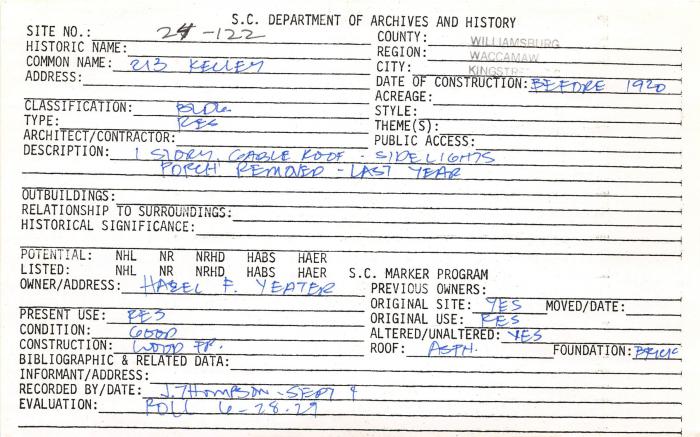 S.C. DEPARTMENT OF ARCHIVES AND HISTORY
SITE NO.: 24-122 COUNTY: WILLIAMSBURG
HISTORIC NAME: REGION: WACCAMAW
COMMON NAME: 213 KELLEY CITY:
ADDRESS: DATE OF CONSTRUCTION: BEFORE 1920
ACREAGE:
CLASSIFICATION: BLDG STYLE:
TYPE: RES THEME(S):
ARCHITECT/CONTRACTOR: PUBLIC ACCESS:
DESCRIPTION: 1 STORY, GABLE ROOF - SIDELIGHTS
PORCH REMOVED - LAST YEAR
OUTBUILDINGS:
RELATIONSHIP TO SURROUNDINGS:
HISTORICAL SIGNIFICANCE:
POTENTIAL: NHL NR NRHD HABS HAER
LISTED: NHL NR NRHD HABS HAER S.C. MARKER PROGRAM
OWNER/ADDRESS: HAZEL F. YEATER PREVIOUS OWNERS:
ORIGINAL SITE: YES MOVED/DATE:
PRESENT USE: RES ORIGINAL USE: RES
CONDITION: GOOD ALTERED/UNALTERED: YES
CONSTRUCTION: WOOD FR. ROOF: ASPH. FOUNDATION: BRICK
BIBLIOGRAPHIC & RELATED DATA:
INFORMANT/ADDRESS:
RECORDED BY/DATE: J. THOMPSON - SEPT 9
EVALUATION: ROLL 6-28-29